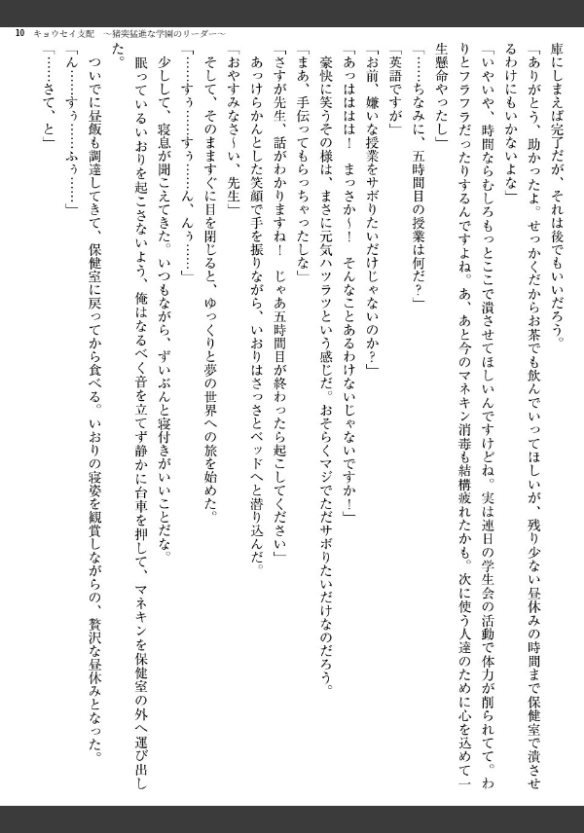 10 キョウセイ支配　～猪突猛進な学園のリーダー～
庫にしまえば完了だが、それは後でもいいだろう。
「ありがとう、助かったよ。せっかくだからお茶でも飲んでいってほしいが、残り少ない昼休みの時間まで保健室で潰させ
るわけにもいかないよな」
「いやいや、時間ならむしろもっとここで潰させてほしいんですけどね。実は連日の学生会の活動で体力が削られてて。わ
りとフラフラだったりするんですよね。あ、あと今のマネキン消毒も結構疲れたかも。次に使う人達のために心を込めて一
生懸命やったし」
「……ちなみに、五時間目の授業は何だ？」
「英語ですが」
「お前、嫌いな授業をサボりたいだけじゃないのか？」
「あっはははは！　まっさか～！　そんなことあるわけないじゃないですか！」
豪快に笑うその様は、まさに元気ハツラツという感じだ。おそらくマジでただサボりたいだけなのだろう。
「まあ、手伝ってもらっちゃったしな」
「さすが先生、話がわかりますね！　じゃあ五時間目が終わったら起こしてください」
あっけらかんとした笑顔で手を振りながら、いおりはさっさとベッドへと潜り込んだ。
「おやすみなさ～い、先生」
そして、そのまますぐに目を閉じると、ゆっくりと夢の世界への旅を始めた。
「……すぅ……すぅ……ん、んぅ……」
少しして、寝息が聞こえてきた。いつもながら、ずいぶんと寝付きがいいことだな。
眠っているいおりを起こさないよう、俺はなるべく音を立てず静かに台車を押して、マネキンを保健室の外へ運び出し
た。
ついでに昼飯も調達してきて、保健室に戻ってから食べる。いおりの寝姿を観賞しながらの、贅沢な昼休みとなった。
「ん……すぅ……ふぅ……」
「……さて、と」